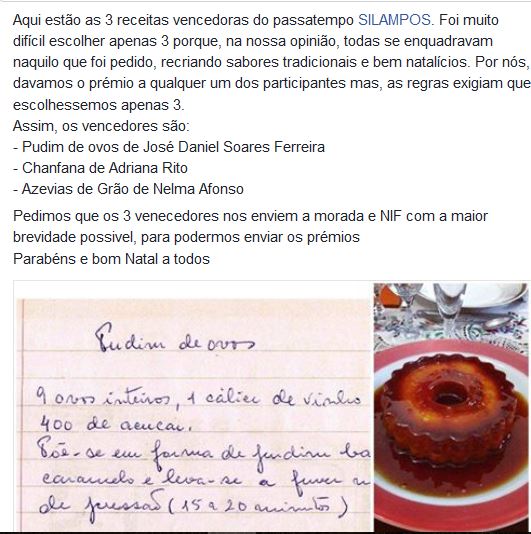 Aqui estão as 3 receitas vencedoras do passatempo SILAMPOS. Foi muito
difícil escolher apenas 3 porque, na nossa opinião, todas se enquadravam
naquilo que foi pedido, recriando sabores tradicionais e bem natalícios. Por nós,
davamos o prémio a qualquer um dos participantes mas, as regras exigiam que
escolhessemos apenas 3.
Assim, os vencedores são:
- Pudim de ovos de José Daniel Soares Ferreira
- Chanfana de Adriana Rito
- Azevias de Grão de Nelma Afonso
Pedimos que os 3 venecedores nos enviem a morada e NIF com a maior
brevidade possivel, para podermos enviar os prémios
Parabéns e bom Natal a todos
Pudim de ovos
9 ovos inteiros, 1 cálice de vinho
400 de açucar.
Põe-se em forma de pudim ba
caramelo e leva-se a
de pressão (15 a 20 minutos)